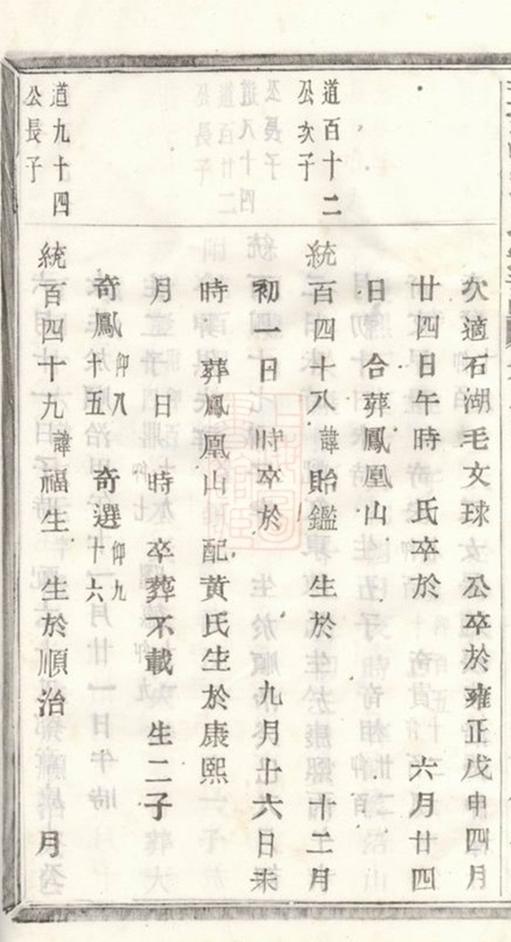 次適石湖毛文球　公卒於雍正戊申四月
廿四日午時　氏卒於　六月廿四
日　合葬鳳凰山
道百十二
公次子
統百四十八諱貽鑑　生於　十二月
初一日　時卒於　九月十六日未
時　葬鳳凰山　配黃氏生於康熙
月　日　時　卒葬不載　生二子
奇鳳仰八十五　奇選仰九十六
道九十四
公長子
統百四十九諱福生　生於順治　月